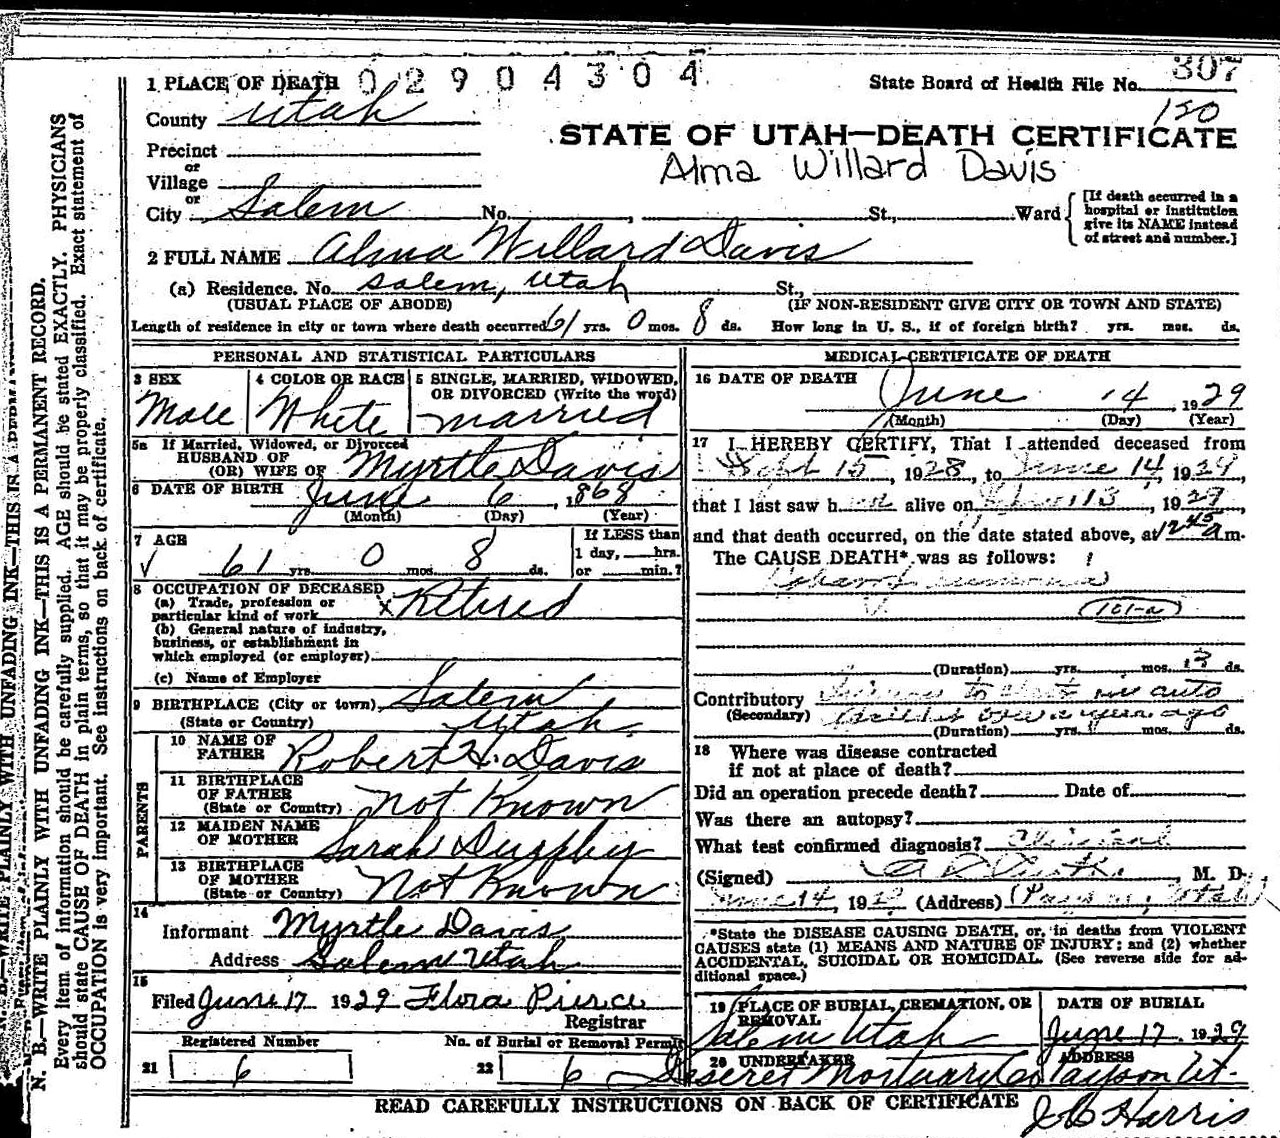 1 PLACE OF DEATH 02904304
State Board of Health File No. 307
County Utah
120
STATE OF UTAH—DEATH CERTIFICATE
Alma Willard Davis
Precinct
or
Village
or
City Salem No. , St., Ward
[If death occurred in a
hospital or institution
give its NAME instead
of street and number.]
2 FULL NAME Alma Willard Davis
(a) Residence. No. Salem, Utah St.,
(USUAL PLACE OF ABODE) (IF NON-RESIDENT GIVE CITY OR TOWN AND STATE)
Length of residence in city or town where death occurred 61 yrs. 0 mos. 8 ds. How long in U. S., if of foreign birth? yrs. mos. ds.
PERSONAL AND STATISTICAL PARTICULARS
3 SEX
Male
4 COLOR OR RACE
White
5 SINGLE, MARRIED, WIDOWED,
OR DIVORCED (Write the word)
married
5a If Married, Widowed, or Divorced
HUSBAND OF
(OR) WIFE OF Myrtle Davis
6 DATE OF BIRTH June 6, 1868
(Month) (Day) (Year)
7 AGE
61 yrs. 0 mos. 8 ds.
If LESS than
1 day, hrs.
or min.?
8 OCCUPATION OF DECEASED
(a) Trade, profession or
particular kind of work x Retired
(b) General nature of industry,
business, or establishment in
which employed (or employer)
(c) Name of Employer
9 BIRTHPLACE (City or town) Salem
(State or Country) Utah
PARENTS
10 NAME OF
FATHER Robert H. Davis
11 BIRTHPLACE
OF FATHER
(State or Country) Not Known
12 MAIDEN NAME
OF MOTHER Sarah Durphey
13 BIRTHPLACE
OF MOTHER
(State or Country) Not Known
14
Informant Myrtle Davis
Address Salem Utah
15
Filed June 17 1929 Flora Pierce
Registrar
Registered Number
21 6
No. of Burial or Removal Permit
22 6
MEDICAL CERTIFICATE OF DEATH
16 DATE OF DEATH
June 14, 1929
(Month) (Day) (Year)
17 I HEREBY CERTIFY, That I attended deceased from
Sept 15, 1928, to June 14, 1929
that I last saw h alive on 13, 1929
and that death occurred, on the date stated above, at 12 45 a m.
The CAUSE DEATH* was as follows:
(101-a)
(Duration) yrs. mos. ds.
Contributory to auto
(Secondary) year ago
(Duration) yrs. mos. ds.
18 Where was disease contracted
if not at place of death?
Did an operation precede death? Date of
Was there an autopsy?
What test confirmed diagnosis? Clinical
(Signed) M. D.
June 14, 192 (Address) Payson, Utah
*State the DISEASE CAUSING DEATH, or, in deaths from VIOLENT
CAUSES state (1) MEANS AND NATURE OF INJURY; and (2) whether
ACCIDENTAL, SUICIDAL OR HOMICIDAL. (See reverse side for ad-
ditional space.)
19 PLACE OF BURIAL, CREMATION, OR
REMOVAL
Salem Utah
DATE OF BURIAL
June 17 1929
20 UNDERTAKER
Deseret Mortuary Co
ADDRESS
Payson Ut.
READ CAREFULLY INSTRUCTIONS ON BACK OF CERTIFICATE
J C Harris
N. B.—WRITE PLAINLY WITH UNFADING INK—THIS IS A PERMANENT RECORD.
Every item of information should be carefully supplied. AGE should be stated EXACTLY. PHYSICIANS
should state CAUSE OF DEATH in plain terms, so that it may be properly classified. Exact statement of
OCCUPATION is very important. See instructions on back of certificate.